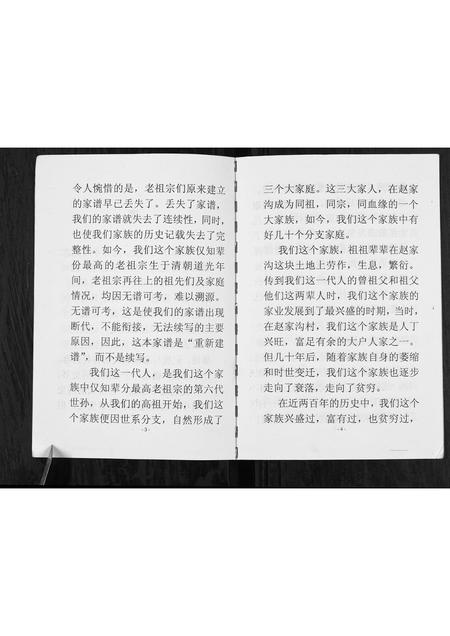 令人惋惜的是，老祖宗们原来建立
的家谱早已丢失了。丢失了家谱，
我们的家谱就失去了连续性，同时，
也使我们家族的历史记载失去了完
整性。如今，我们这个家族仅知辈
份最高的老祖宗生于清朝道光年
间，老祖宗再往上的祖先们及家庭
情况，均因无谱可考，难以溯源。
无谱可考，这是使我们的家谱出现
断代，不能衔接，无法续写的主要
原因，因此，这本家谱是“重新建
谱”，而不是续写。
我们这一代人，是我们这个家
族中仅知辈分最高老祖宗的第六代
世孙，从我们的高祖开始，我们这
个家族便因世系分支，自然形成了
-3-
三个大家庭。这三大家人，在赵家
沟成为同祖，同宗，同血缘的一个
大家族，如今，我们这个家族中有
好几十个分支家庭。
我们这个家族，祖祖辈辈在赵家
沟这块土地上劳作，生息，繁衍。
传到我们这一代人的曾祖父和祖父
他们这两辈人时，我们这个家族的
家业发展到了最兴盛的时期，当时，
在赵家沟村，我们这个家族是人丁
兴旺，富足有余的大户人家之一。
但几十年后，随着家族自身的萎缩
和时世变迁，我们这个家族也逐步
走向了衰落，走向了贫穷。
在近两百年的历史中，我们这个
家族兴盛过，富有过，也贫穷过，
-4-